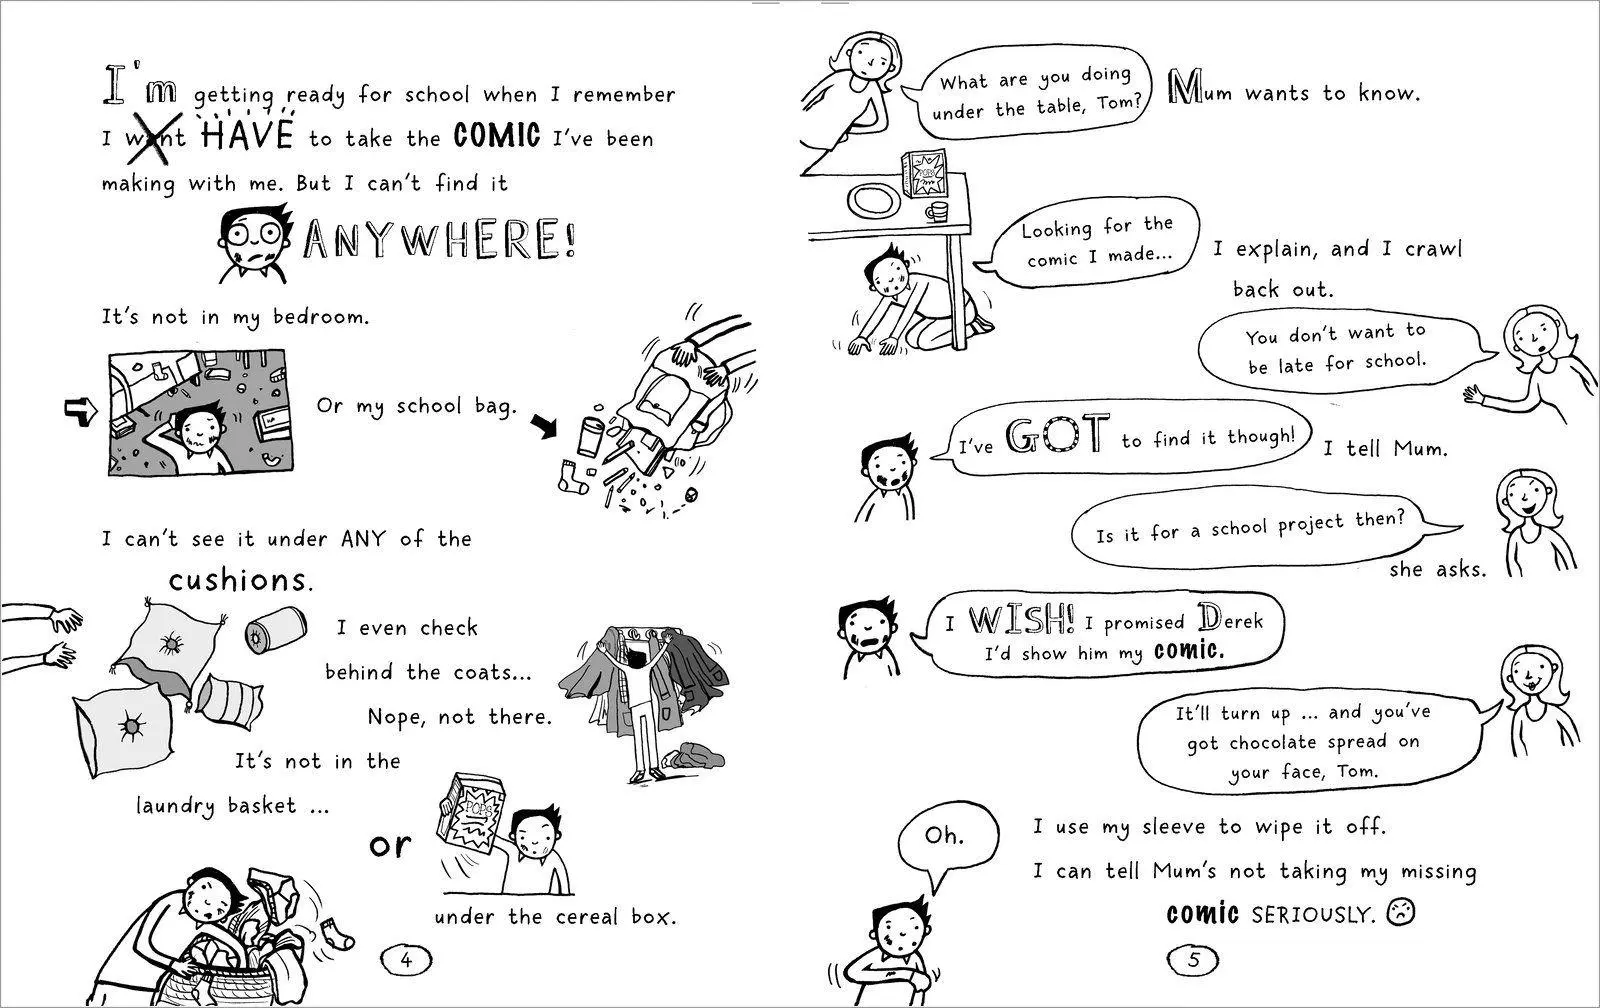 I'm getting ready for school when I remember
I want HAVE to take the COMIC I've been
making with me. But I can't find it
ANYWHERE!
It's not in my bedroom.
Or my school bag.
I can't see it under ANY of the
cushions.
I even check
behind the coats...
Nope, not there.
It's not in the
laundry basket ...
or
POPS
under the cereal box.
4
What are you doing
under the table, Tom?
Mum wants to know.
POPS
Looking for the
comic I made...
I explain, and I crawl
back out.
You don't want to
be late for school.
I've GOT to find it though!
I tell Mum.
Is it for a school project then?
she asks.
I WISH! I promised Derek
I'd show him my comic.
It'll turn up ... and you've
got chocolate spread on
your face, Tom.
Oh.
I use my sleeve to wipe it off.
I can tell Mum's not taking my missing
comic SERIOUSLY.
5